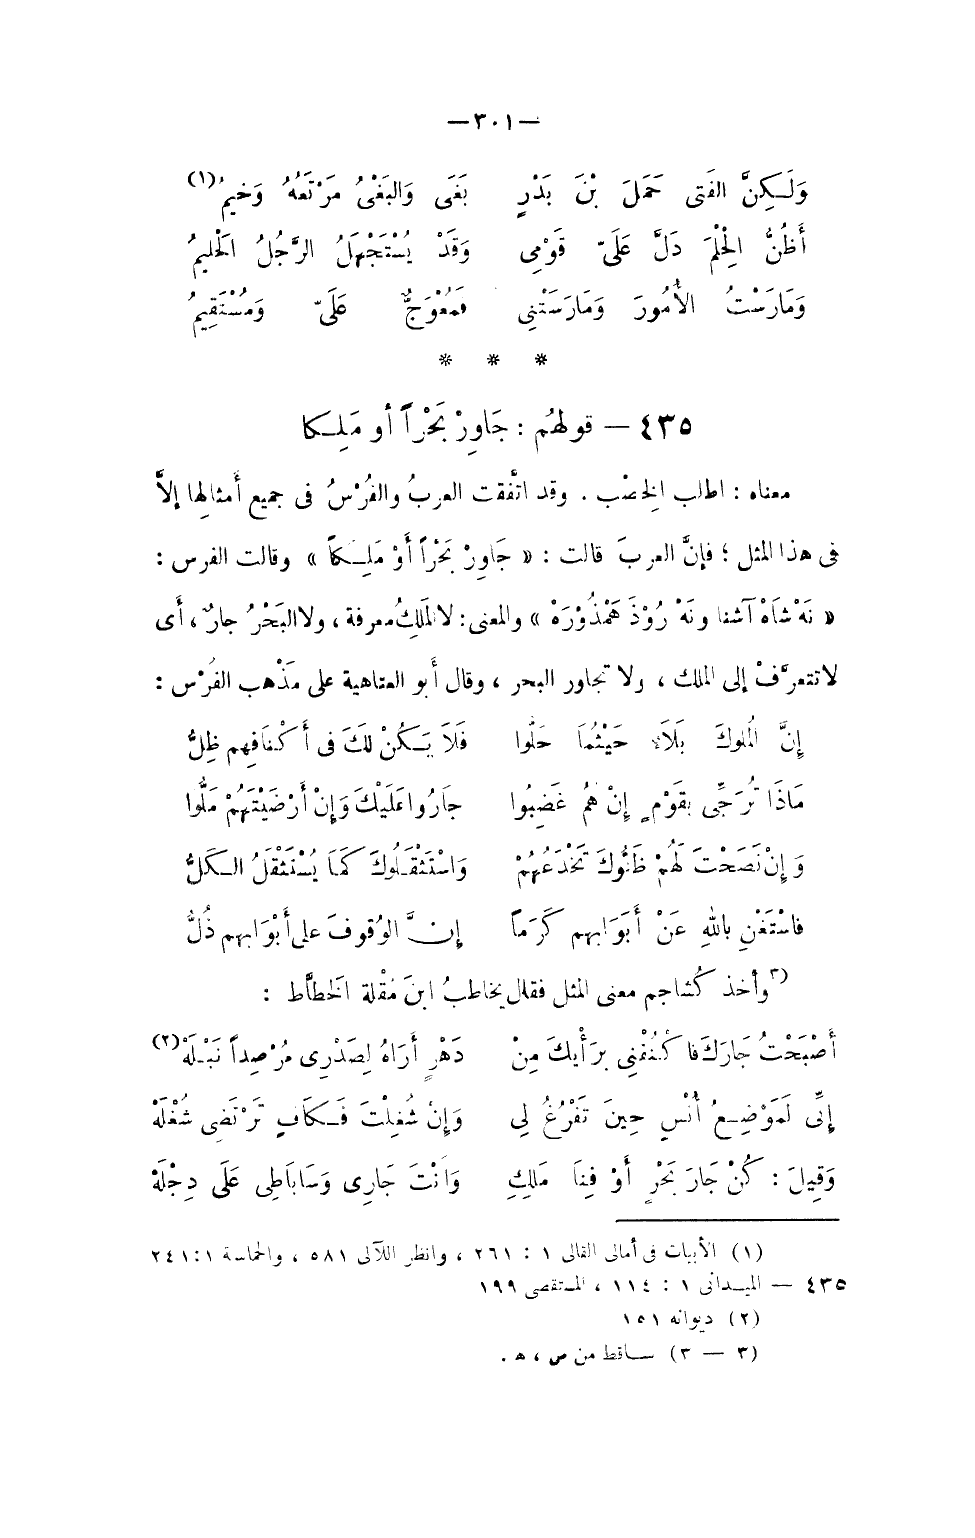 —٣٠١—
وَلَـكِنَّ الفَتَى حَمَلَ بْنَ بَدْرٍ بَغَى وَالبَغْىُ مَرْتَعُهُ وَخيمُ(١)
أَظُنُّ الحِلْمَ دَلَّ عَلَىّ قَوْمِى وَقَدْ يُسْتَجْهَلُ الرَّجُلُ الحَليمُ
وَمَارَسْتُ الأُمُورَ وَمَارَسَتْنِى فَمُعْوَجٌّ عَلَىّ وَمُسْتَقِيمُ
* * *
٤٣٥ — قولهُم : جَاوِرْ بَحْراً أو مَلِـكا
معناه : اطلب الخِصْب . وقد اتفَّقت العربُ والفُرْسُ فى جميع أمثالِها إلاَّ
فى هذا المثل ؛ فإنَّ العربَ قالت : « جَاوِرْ بَحْراً أَوْ مَلِـكاً » وقالت الفرس :
« نَهْ شَاهْ آشنا ونَهْ رُوْذَ هَمْذُورَهْ » والمعنى : لا المَلَكُ معرفة ، ولا البَحْرُ جارٌ ، أى
لا تتعرَّفْ إلى الملك ، ولا تجاور البحر ، وقال أبو العتاهية على مَذْهب الفُرْس :
إنَّ المُلوكَ بَلَاءٌ حَيْثُمَا حَلُّوا فَلَا يَـكُنْ لَكَ فى أَكْنَافِهِم ظِلُّ
مَاذَا تُرَجِّى بِقَوْمٍ إِنْ هُمُ غَضِبُوا جَارُوا عَلَيْكَ وَإنْ أَرْضَيْتَهُمْ مَلُّوا
وَ إنْ نَصَحْتَ لَهُمْ ظَنُّوكَ تَخْدَعُهُمْ وَاسْتَثْقَلُوكَ كَمَا يُسْتَثْقَلُ الـكَلُّ
فاسْتَغْنِ بِاللهِ عَنْ أَبْوَابِهِم كَرَماً إنـَّ الوُقوفَ على أبْوَابِهِم ذُلُّ
(٣وأخذ كُشاجم معنى المثل فقال يخاطبُ ابنَ مُقْلة الخطَّاط :
أَصْبَحْتُ جَارَكَ فَاكْنُفْنِى بِرَأْيكَ مِنْ دَهْرٍ أَرَاهُ لِصَدْرِى مُرْصِداً نَبْـلَهْ(٢)
إنِّى لَمَوْضِـعُ أُنْسٍ حِينَ تَفْرُغُ لِى وَإِنْ شُغِلْتَ فَـكَافٍ تَرْتَضِى شُغْلَهْ
وَقِيلَ : كُنْ جَارَ بَحْرٍ أَوْ فِنَا مَلكٍ وَأنْتَ جَارِى وَسَابَاطِى عَلَى دِجْلَهْ
(١) الأبيات فى أمالى القالى ١ : ٢٦١ ، وانظر اللآلى ٥٨١ ، والحماسة ١ : ٢٤١
٤٣٥ — الميـدانى ١ : ١١٤ ، المستقصى ١٩٩
(٢) ديوانه ١٥١
(٣ — ٣) ساقط من ص ، ه .